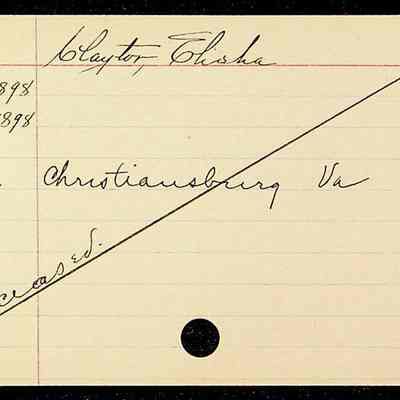 Claytor, Elisha
1898
1898
Christiansburg Va
ceased.